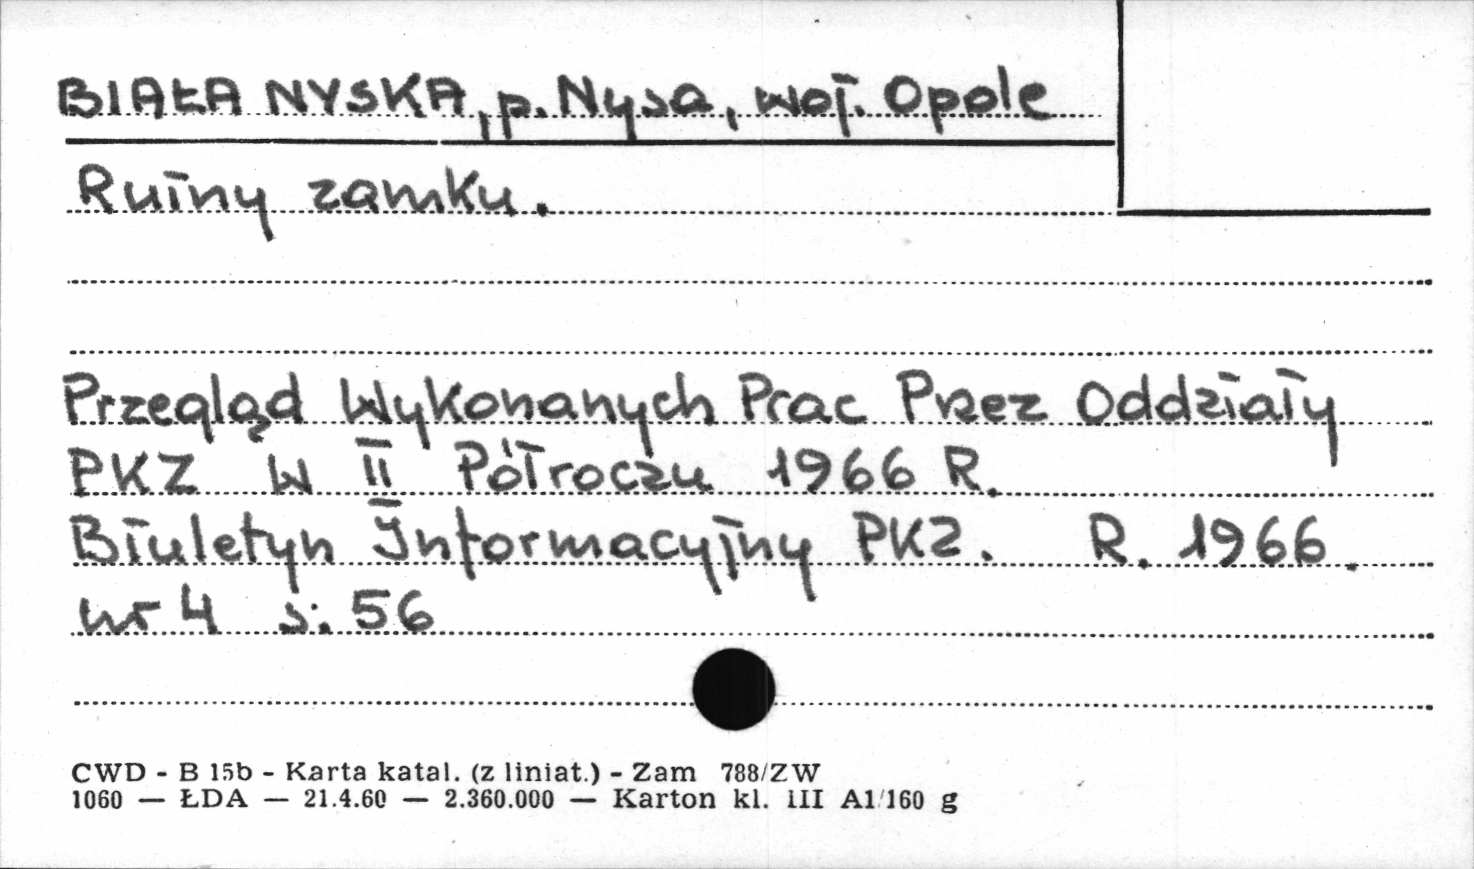 BIAŁA NYSKA, p. Nysa, woj. Opole
Ruiny zamku.
Przegląd Wykonanych Prac Przez Oddziały
PKZ W II Półroczu 1966 R.
Biuletyn Informacyjny PKZ. R. 1966.
nr 4 s. 56
CWD - B 15b - Karta katal. (z liniat.) - Zam 788/ZW
1060 — ŁDA — 21.4.60 — 2.360.000 — Karton kl. III A1/160 g